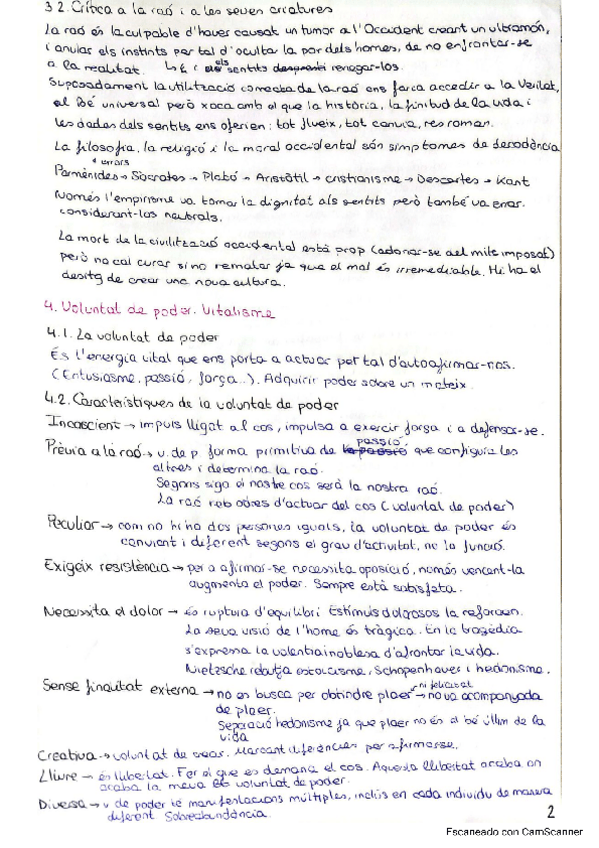 3.2. Crítica a la raó i a les seves criatures
La raó és la culpable d'haver causat un tumor a l'Occident creant un ultramón,
i anular els instints per tal d'ocultar la por dels homes, de no enfrontar-se
a la realitat. ↳ És i els sentits renegar-los.
Suposadament la utilització correcta de la raó ens farca accedir a la Veritat,
el Bé universal però xoca amb el que la història, la finitud de la vida i
les dades dels sentits ens oferien: tot flueix, tot canvia, res roman.
La filosofia, la religió i la moral occidental són símptomes de decadència
4 errors
Parmènides → Sòcrates → Plató → Aristòtil → cristianisme → Descartes → Kant
Només l'empirisme va tornar la dignitat als sentits però també va errar
considerant-los neutrals.
La mort de la civilització occidental està prop (adonar-se del mite imposat)
però no cal curar sino rematar ja que el mal és irremeiable. Hi ha el
desitg de crear una nova cultura.
4. Voluntat de poder. Vitalisme
4.1. La voluntat de poder
És l'energia vital que ens porta a actuar per tal d'autoafirmar-nos.
(Entusiasme, passió, força...). Adquirir poder sobre un mateix.
4.2. Característiques de la voluntat de poder
Inconscient → impuls lligat al cos, impulsa a exercir força i a defensar-se.
Prèvia a la raó → v. de p. forma primitiva de passió que configura les
altres i determina la raó.
Segons sigo el nostre cos serà la nostra raó.
La raó rep ordres d'actuar del cos (voluntat de poder)
Peculiar → com no hi ha dos persones iguals, la voluntat de poder és
canviant i diferent segons el grau d'activitat, no la funció.
Exigeix resistència → per a afirmar-se necessita oposició, només vencent-la
augmenta el poder. Sempre està satisfeta.
Necessita el dolor → és ruptura d'equilibri. Estímuls dolorosos la reforcen.
La seva visió de l'home és tràgica. En la tragèdia
s'expressa la valentia i noblesa d'afrontar la vida.
Nietzsche rebutja estoïcisme, Schopenhauer i hedonisme.
Sense finalitat externa → no es busca per obtindre plaer ni felicitat → no va acompanyada
de plaer.
Separació hedonisme ja que plaer no és el bé últim de la
vida
Creativa → voluntat de crear. Marcant diferències per afirmarse.
Lliure → és llibertat. Fer el que es demana el cos. Aquesta llibertat acaba on
acaba la meva voluntat de poder.
Diversa → v de poder té manifestacions múltiples, inclús en cada individu de manera
diferent. Sobreabundància.
2
Escaneado con CamScanner